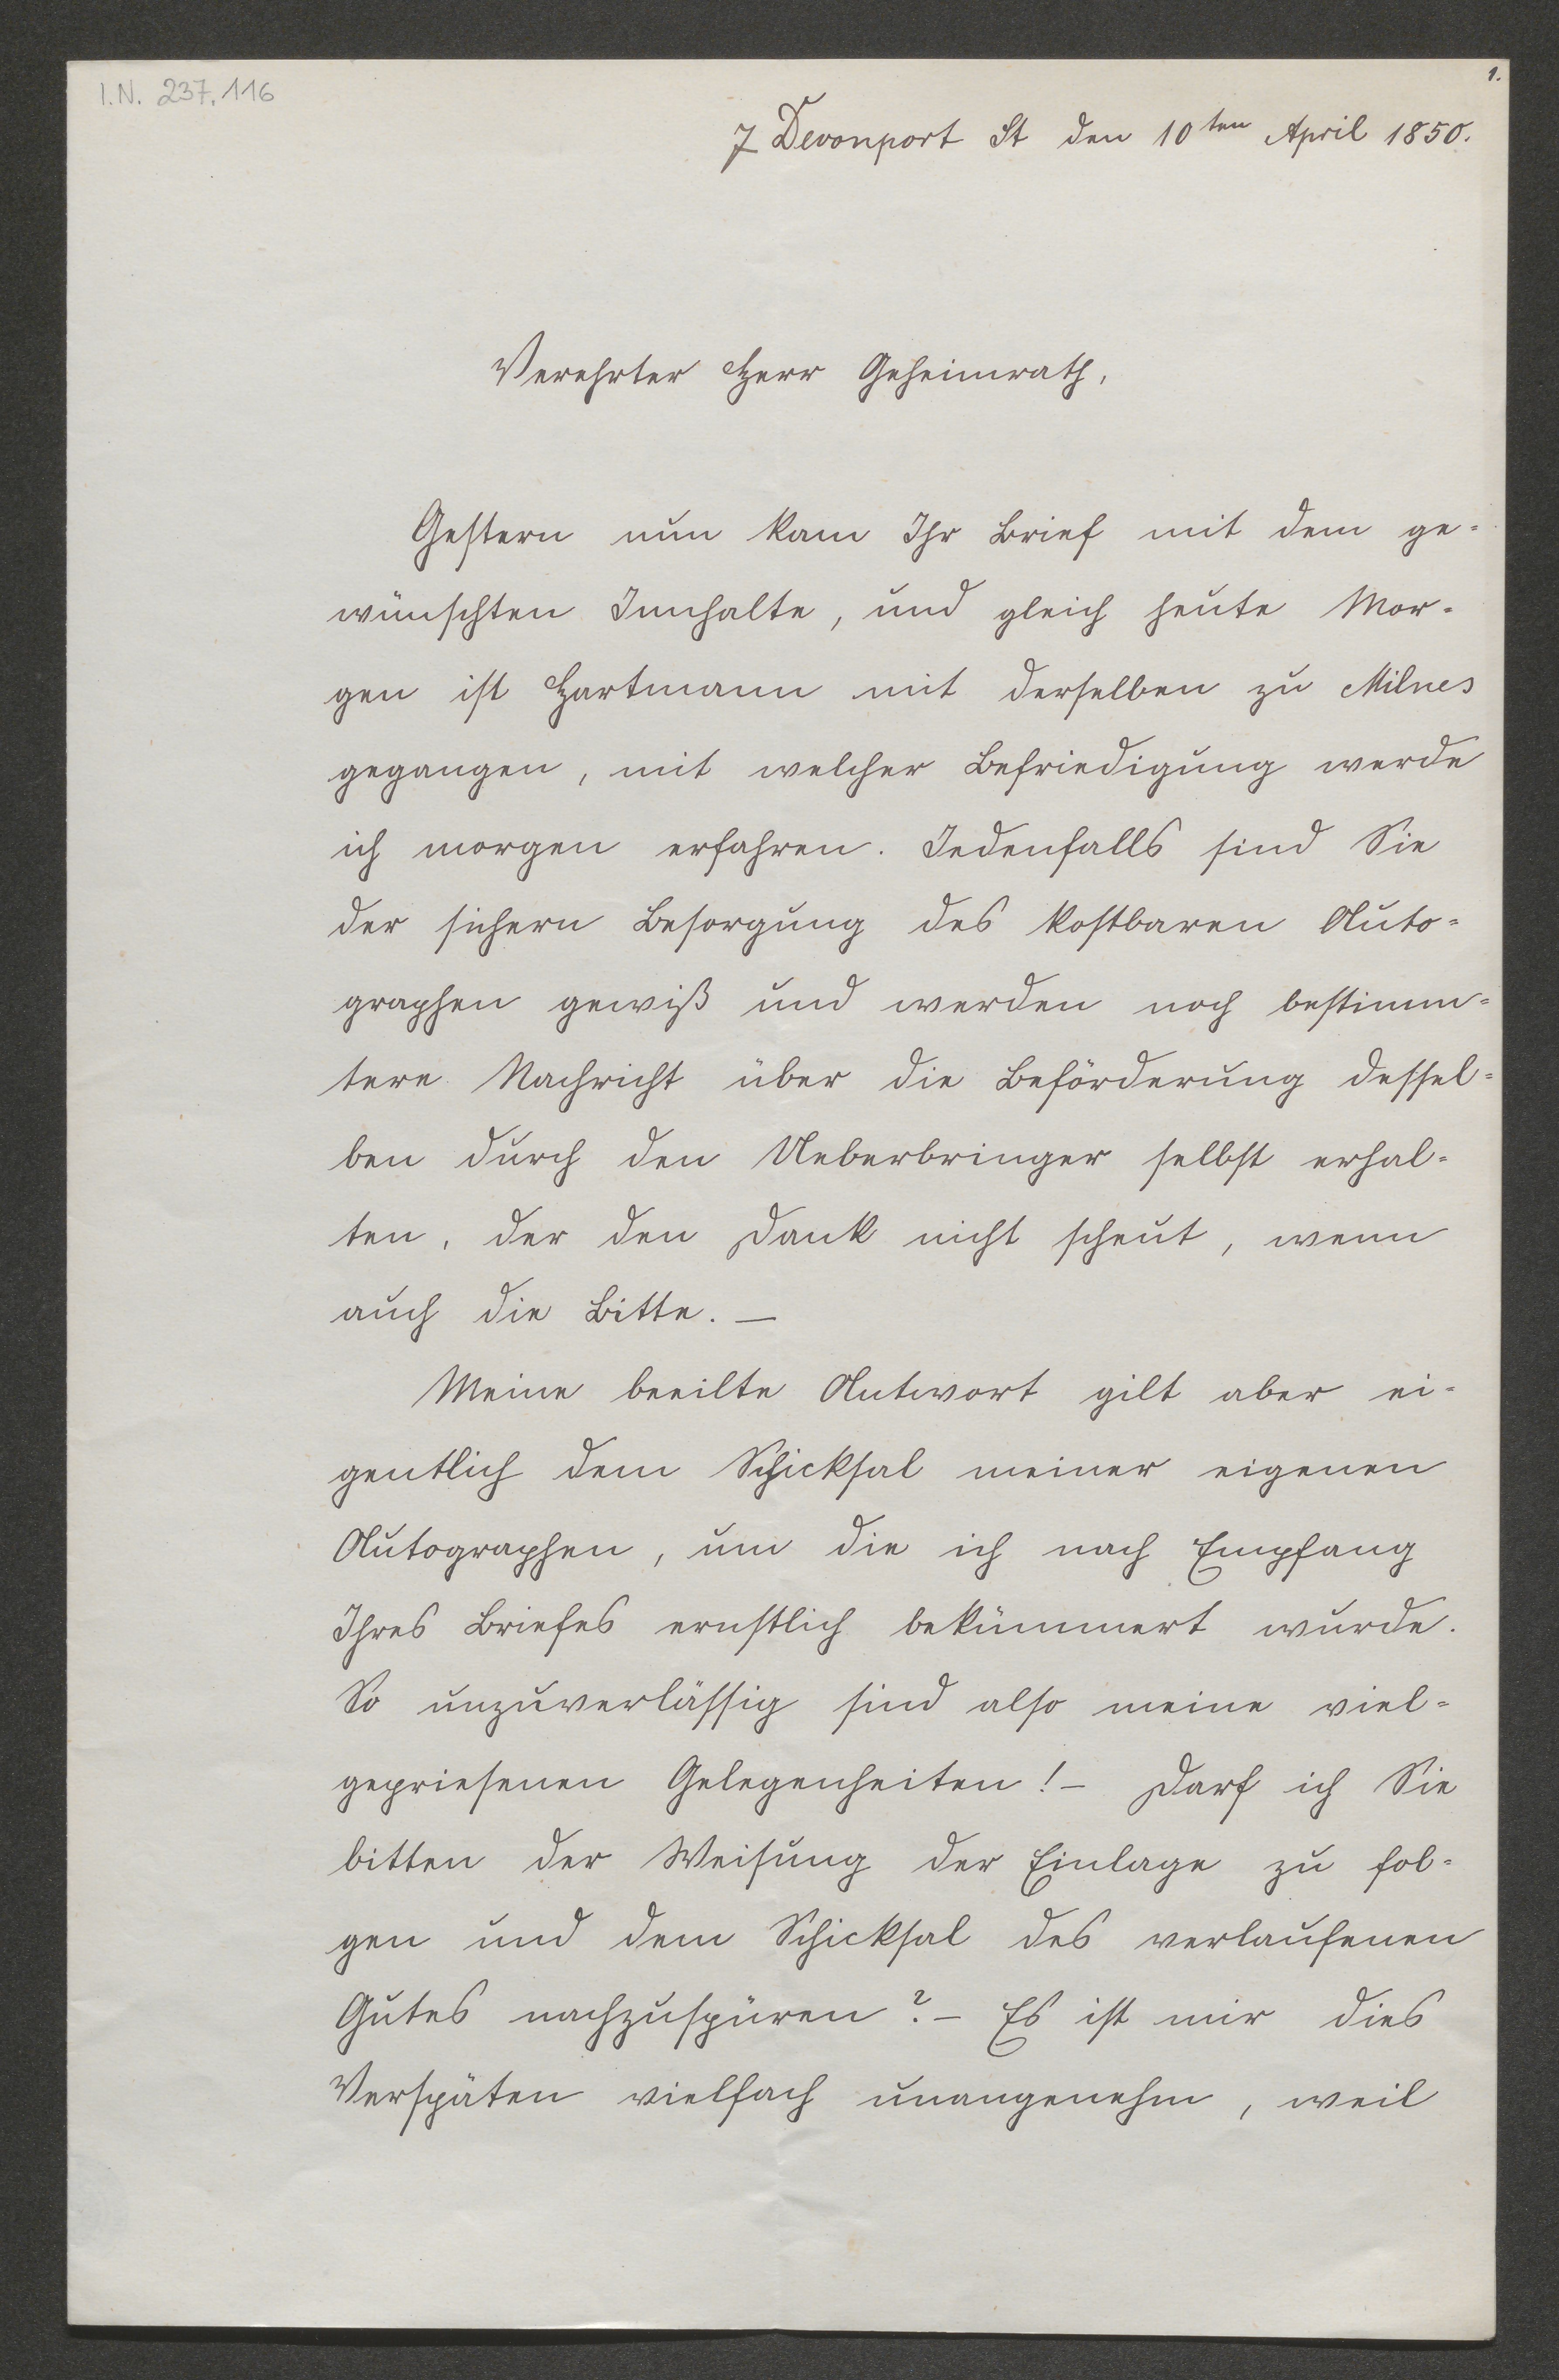 I.N. 237.116
1.
7 Devonport St den 10ten April 1850.
Verehrter Herr Geheimrath,
Gestern nun kam Ihr Brief mit dem ge-
wünschten Innhalte, und gleich heute Mor-
gen ist Hartmann mit derselben zu Milnes
gegangen, mit welcher Befriedigung werde
ich morgen erfahren. Jedenfalls sind Sie
der sichern Besorgung des kostbaren Auto-
graphen gewiß und werden noch bestimm-
tere Nachricht über die Beförderung dessel-
ben durch den Ueberbringer selbst erhal-
ten, der den Dank nicht scheut, wenn
auch die Bitte. —
Meine beeilte Antwort gilt aber ei-
gentlich dem Schicksal meiner eigenen
Autographen, um die ich nach Empfang
Ihres Briefes ernstlich bekümmert wurde.
So unzuverlässig sind also meine viel-
gepriesenen Gelegenheiten! – Darf ich Sie
bitten der Weisung der Einlage zu fol-
gen und dem Schicksal des verlaufenen
Gutes nachzuspüren? – Es ist mir dies
Verspäten vielfach unangenehm, weil